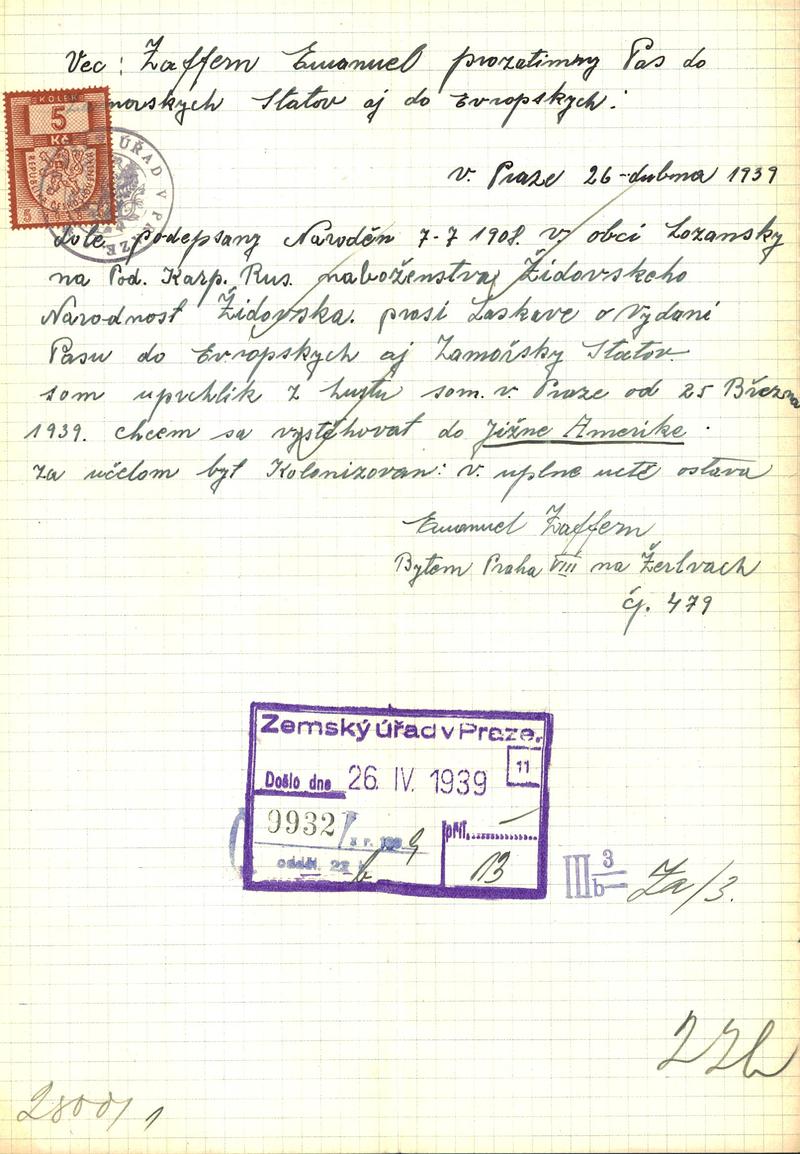 Vec: Zaffern Emanuel prozatimny Pas do
morskych Statov aj do Evropskych:
v. Praze 26-dubna 1939
KOLEK
5
Kč
ÚŘAD V PRAZE
Dole podepsany Naroděn 7-7 1908. v. obci Lozansky
na Pod. Karp. Rus. naboženstva Židovskeho
Narodnost Židovska. prosi Laskave o Vydani
Pasu do Evropskych aj Zamořsky Statov.
som uprchlik z hustu som. v. Praze od 25 Března
1939. chcem sa vystěhovat do Jižne Amerike.
za učelom byt Kolonizovan: v. uplne uctě ostava
Emanuel Zaffern
Bytem Praha VIII na Žertvach
čp. 479
Zemský úřad v Praze.
11
Došlo dne 26. IV. 1939
9932/
odděl. 22
příl.
13
III 3
b
Za/3.
22b
2800/1